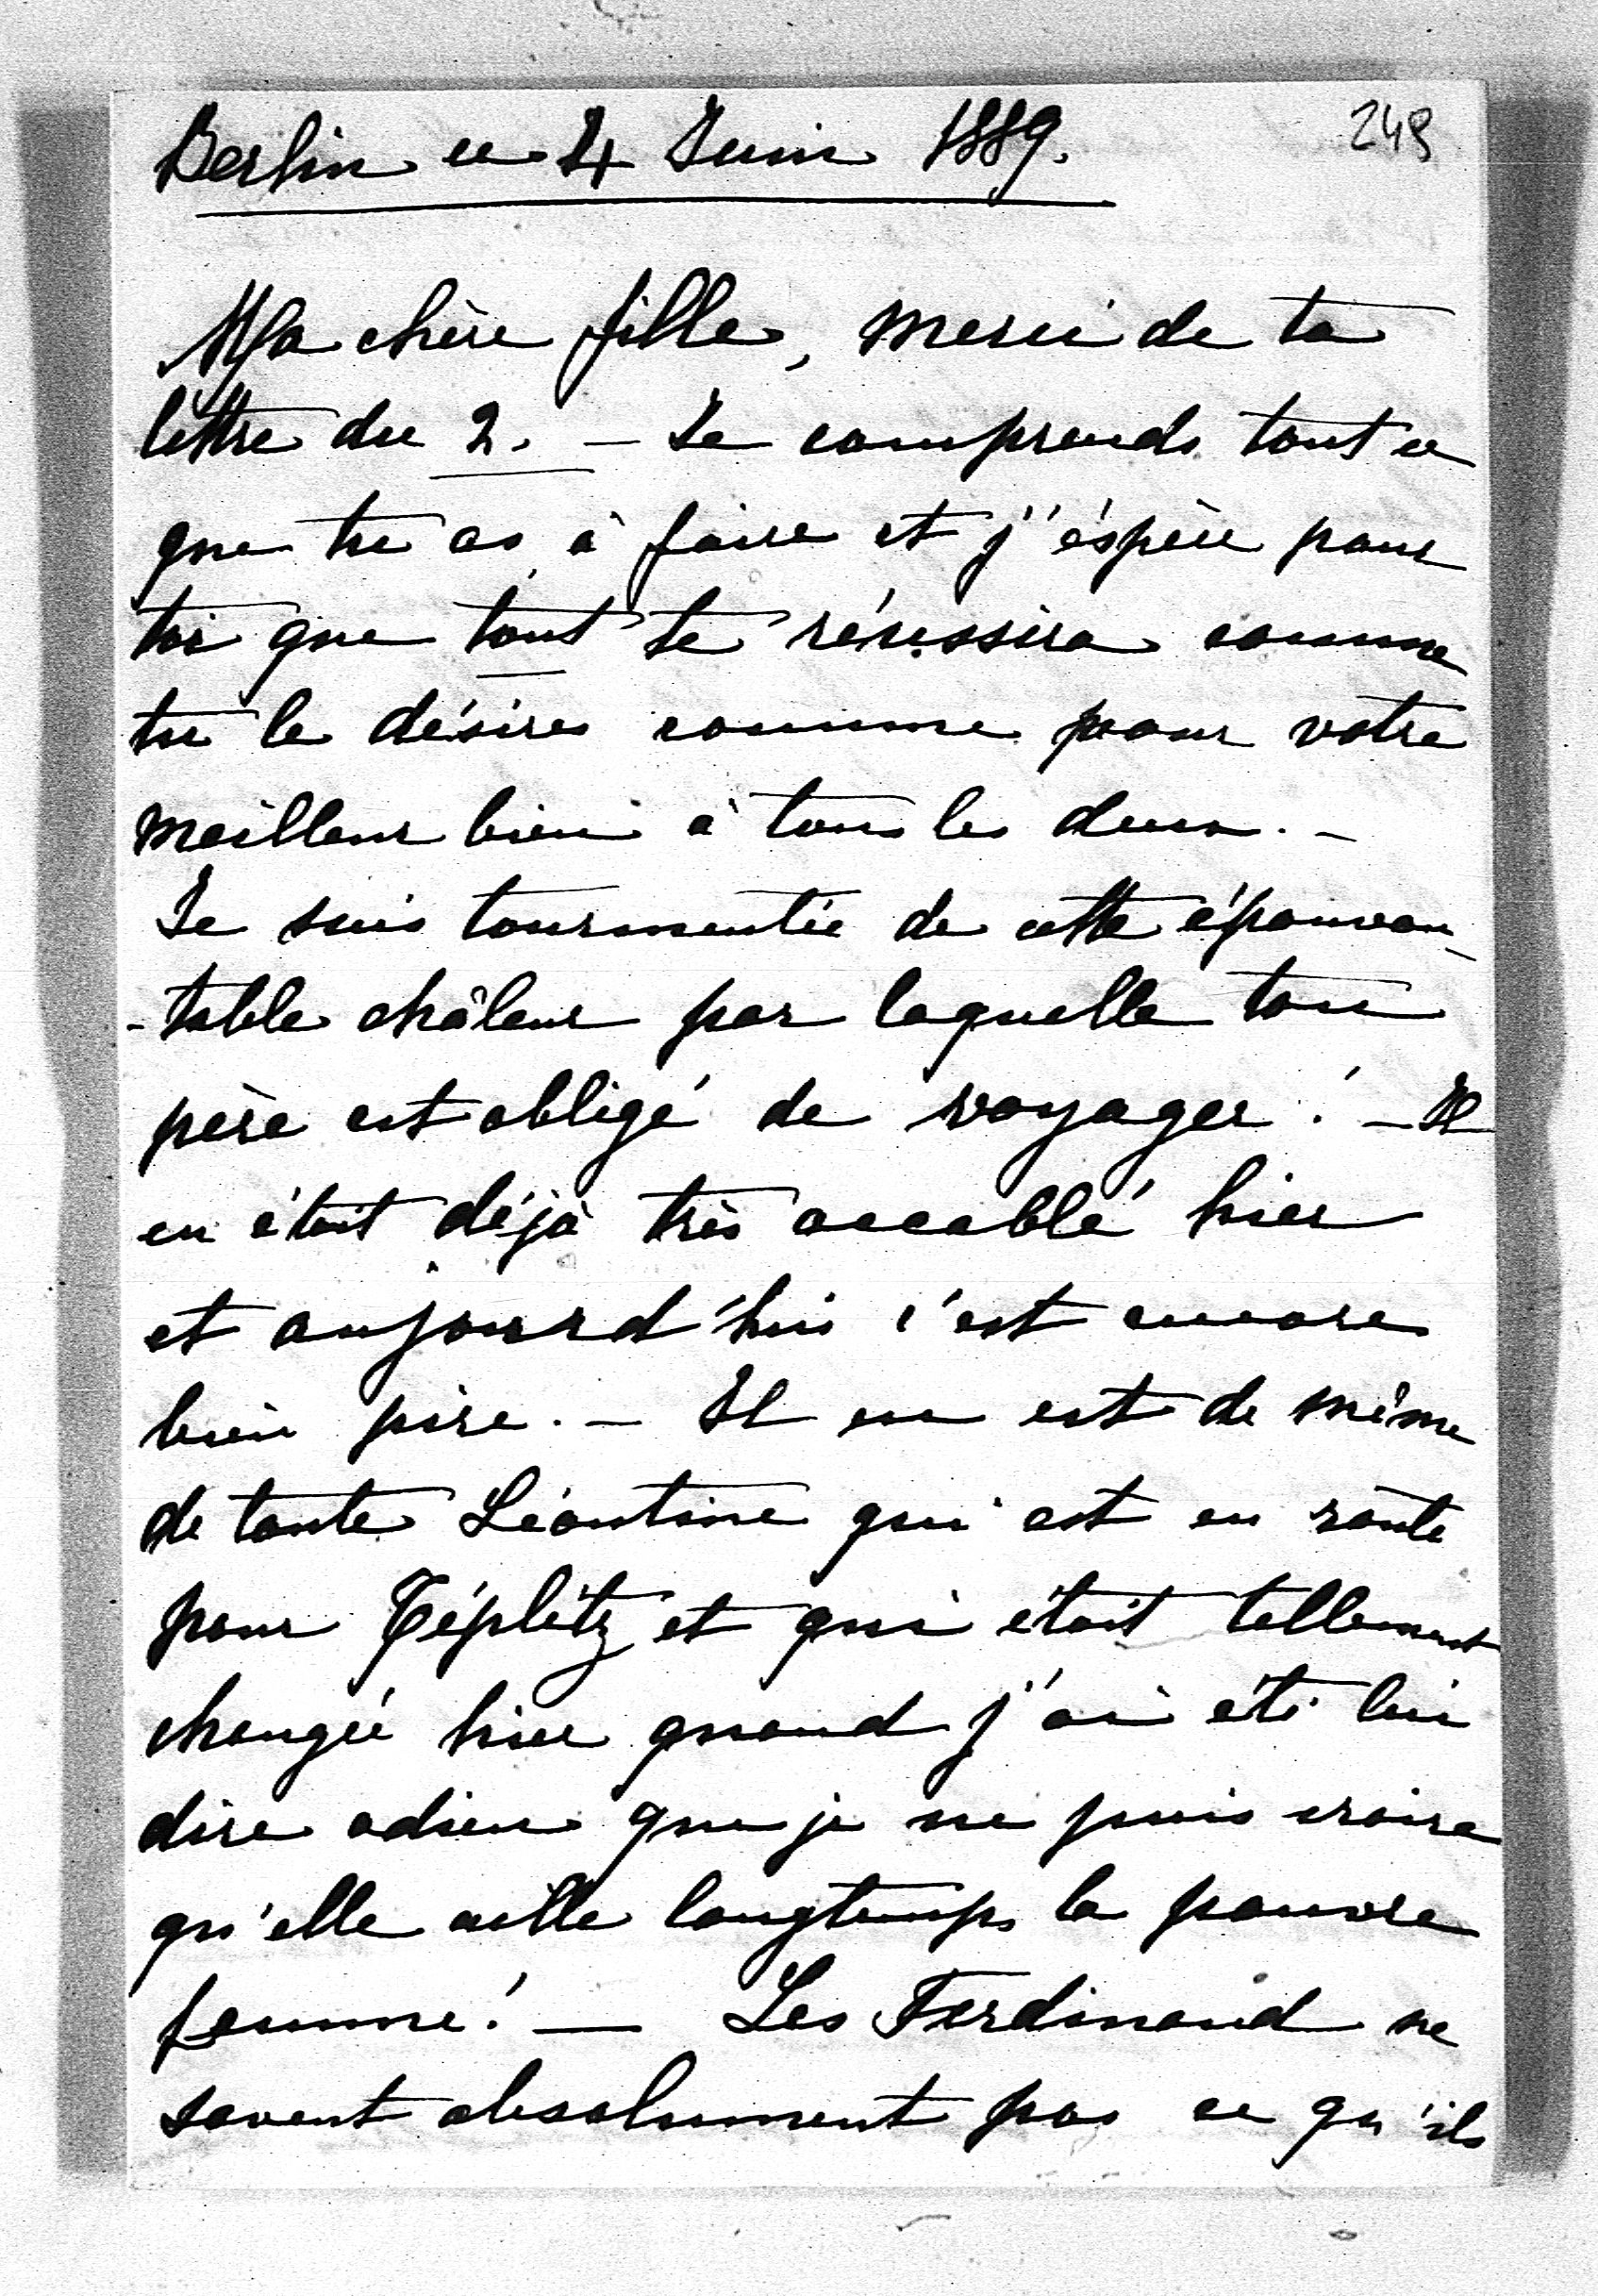 Berlin ce 4 Juin 1889.
249
Ma chère fille, merci de ta
lettre du 2. – Je comprends tout ce
que tu as à faire et j'éspère pour
toi que tout te réussira comme
tu le désires comme pour votre
meilleur bien à tous les deux. –
Je suis tourmentée de cette épouvan-
-table châleur par laquelle ton
père est obligé de voyager! – Il
en était déjà très accablé hier
et aujourd'hui c'est encore
bien pire. – Il en est de même
de tante Léontine qui est en route
pour Téplitz et qui était tellement
changée hier quand j'ai été lui
dire adieu que je ne puis croire
qu'elle aille longtemps la pauvre
femme! — Les Ferdinand ne
savent absolument pas ce qu'ils